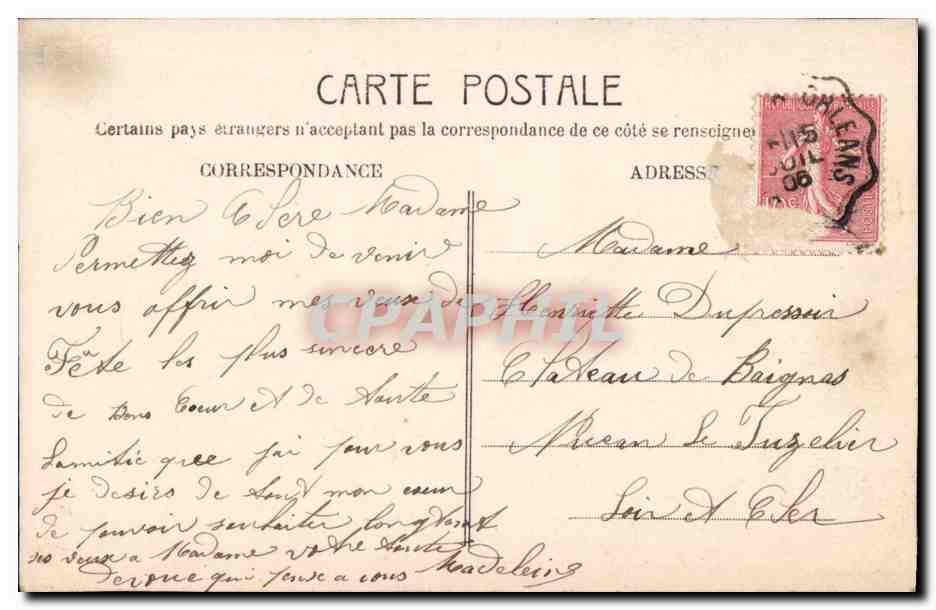 CARTE POSTALE
Certains pays étrangers n'acceptent pas la correspondance de ce côté se renseigne
CORRESPONDANCE
ADRESSE
ORLEANS
15
JUIL
06
Bien Chère Madame
Permettez moi de venir
vous offrir mes veux de
Fête les plus sincere
de Bons Coeur et de toute
Lamitié que j'ai pour vous
je desirs de tout mon coeur
de pouvoir souhaiter longtemps
vos veux a Madame votre toute
devoué qui pense a vous Madeleine
Madame
Henriette Dupressoir
Chateau de Baignas
Neuan le Fuzelier
Loir et Cher
CPAPHIL